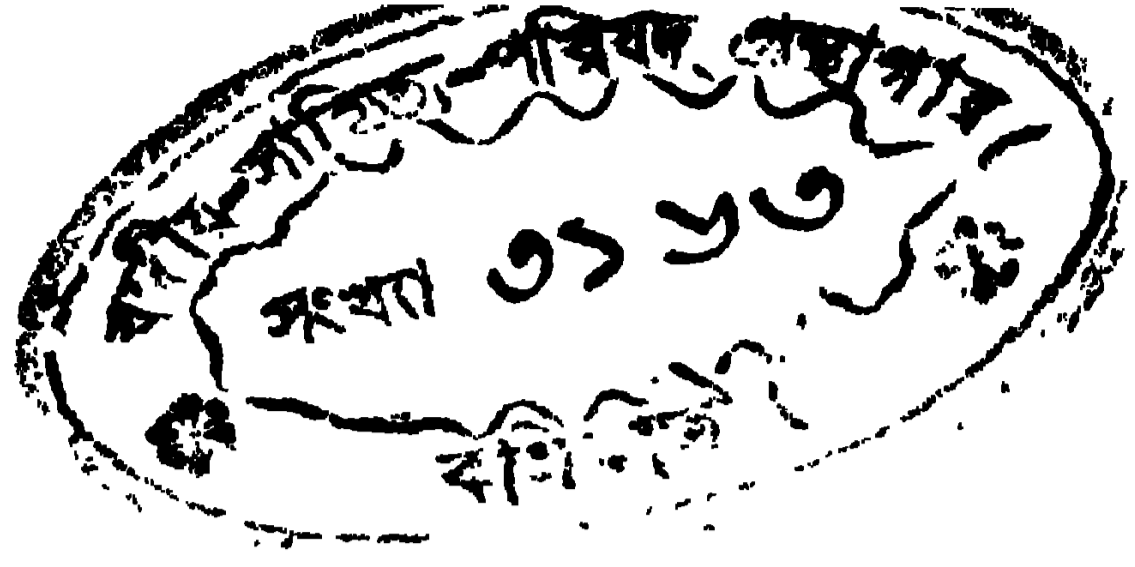 বঙ্গীয়-সাহিত্য-পরিষদ গ্রন্থাগার
সংখ্যা ৩১৬৩